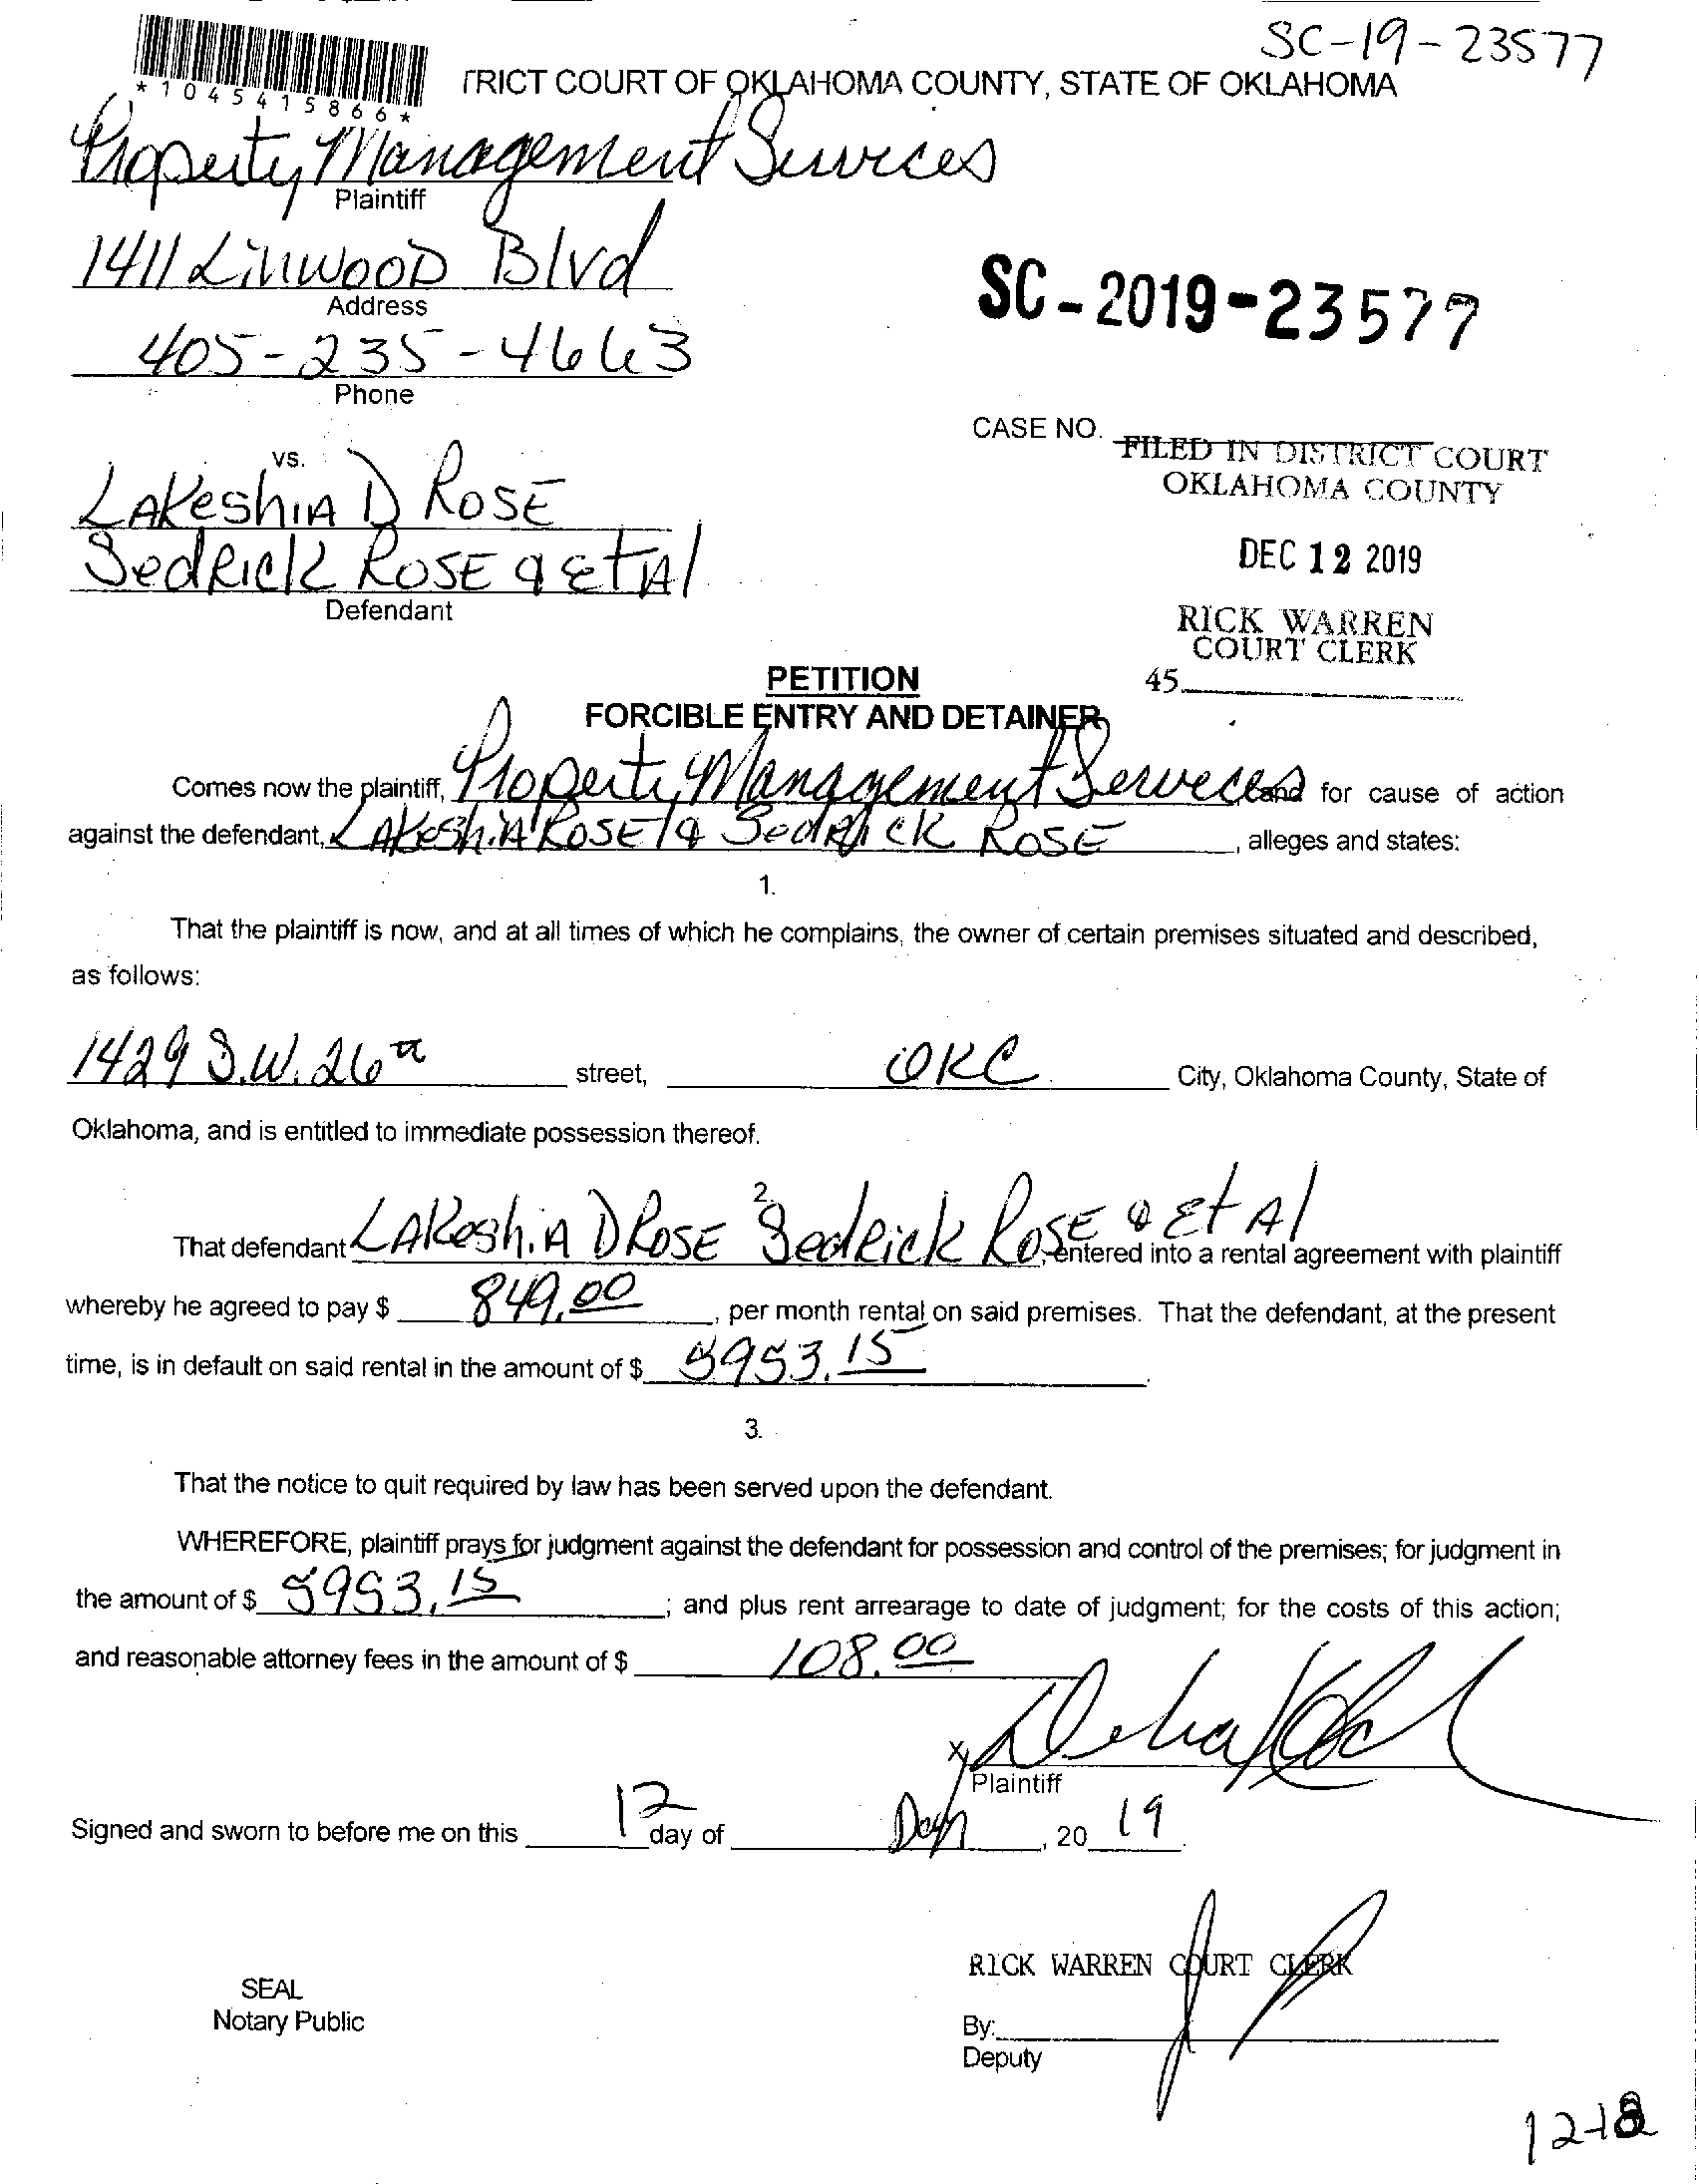 SC-19-23577
*1045415866*
TRICT COURT OF OKLAHOMA COUNTY, STATE OF OKLAHOMA
Property Management Services
Plaintiff
1411 Linwood Blvd
Address
SC-2019-23577
405-235-4663
Phone
CASE NO.
FILED IN DISTRICT COURT
OKLAHOMA COUNTY
vs.
LAKeshiA D ROSE
SedRick ROSE & Et Al
Defendant
DEC 12 2019
RICK WARREN
COURT CLERK
45
PETITION
FORCIBLE ENTRY AND DETAINER
Comes now the plaintiff, Property Management Services and for cause of action
against the defendant, LAKeshiA ROSE & SedRick ROSE, alleges and states:
1.
That the plaintiff is now, and at all times of which he complains, the owner of certain premises situated and described,
as follows:
1429 S.W. 26th street, OKC City, Oklahoma County, State of
Oklahoma, and is entitled to immediate possession thereof.
2.
That defendant LAKeshiA D ROSE SedRick ROSE & Et Al, entered into a rental agreement with plaintiff
whereby he agreed to pay $ 849.00, per month rental on said premises. That the defendant, at the present
time, is in default on said rental in the amount of $ 5953.15
3.
That the notice to quit required by law has been served upon the defendant.
WHEREFORE, plaintiff prays for judgment against the defendant for possession and control of the premises; for judgment in
the amount of $ 5953.15; and plus rent arrearage to date of judgment; for the costs of this action;
and reasonable attorney fees in the amount of $ 108.00
x
Plaintiff
Signed and sworn to before me on this 12 day of , 20 19.
RICK WARREN COURT CLERK
SEAL
Notary Public
By:
Deputy